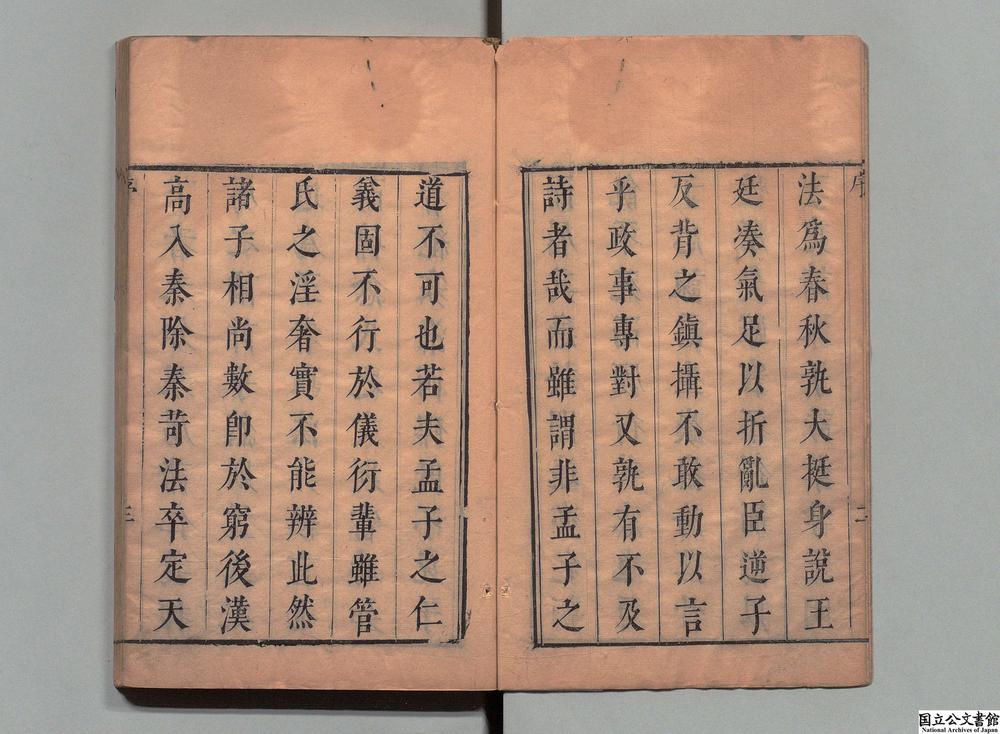 序
二
法爲春秋孰大挺身說王
廷凑氣足以折亂臣逆子
反背之鎭攝不敢動以言
乎政事專對又孰有不及
詩者哉而雖謂非孟子之
道不可也若夫孟子之仁
義固不行於儀衍輩雖管
氏之淫奢實不能辨此然
諸子相尚數卽於窮後漢
高入秦除秦苛法卒定天
序
三
国立公文書館
National Archives of Japan